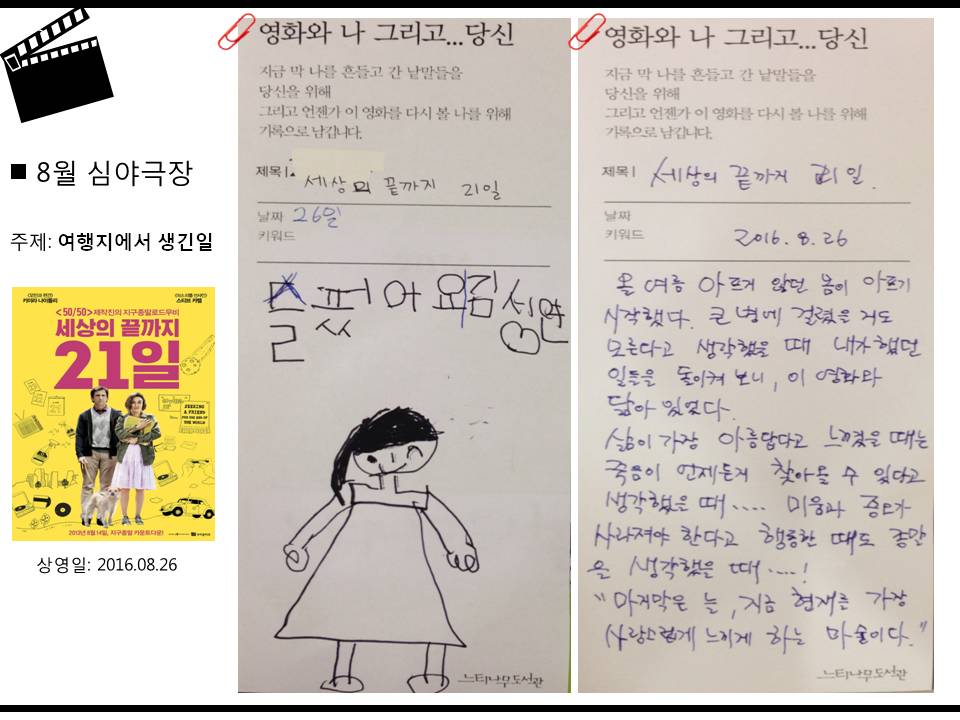 ■ 8월 심야극장
주제: 여행지에서 생긴일
<50/50>제작진의 지구종말로드무비
세상의 끝까지
21일
SEEKING
A FRIEND
FOR THE END OF
THE WORLD
2013년 8월 14일, 지구종말 카운트다운!
상영일: 2016.08.26
영화와 나 그리고...당신
지금 막 나를 흔들고 간 낱말들을
당신을 위해
그리고 언젠가 이 영화를 다시 볼 나를 위해
기록으로 남깁니다.
제목 | 세상의 끝까지 21일
날짜 26일
키워드
슬펐어요
느티나무도서관
영화와 나 그리고...당신
지금 막 나를 흔들고 간 낱말들을
당신을 위해
그리고 언젠가 이 영화를 다시 볼 나를 위해
기록으로 남깁니다.
제목 | 세상의 끝까지 21일.
날짜
키워드 2016. 8. 26
올 여름 아프지 않던 몸이 아프기
시작했다. 큰 병에 걸렸을 거도
모른다고 생각했을 때 내가 했던
일들을 돌이켜 보니, 이 영화와
닮아 있었다.
삶이 가장 아름답다고 느꼈을 때는
죽음이 언제든지 찾아올 수 있다고
생각했을 때.... 미움과 증오가
사라져야 한다고 행동한 때도 종말
을 생각했을 때....!
"마지막은 늘, 지금 현재를 가장
사랑스럽게 느끼게 하는 마술이다."
느티나무도서관